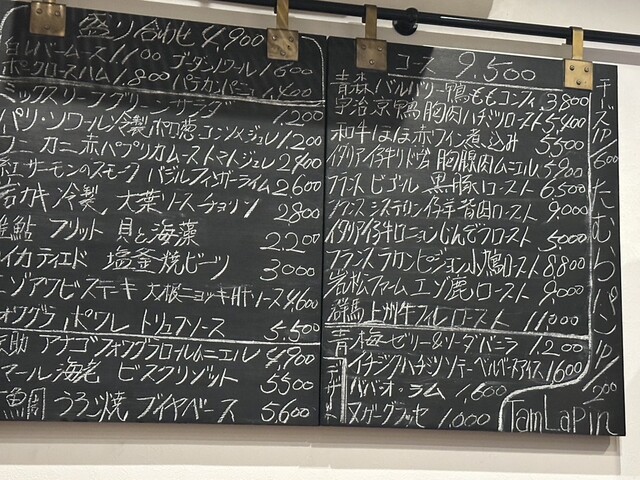 盛り合わせ 4,900
白レバームース 1100 ゴーダノワール 1600
ポークロースハム 1,800 パテカンパーニュ 1,400
ミックスリーフグリーンサラダ 1200
パリ・ソワール冷製 コンソメジュレ 1,200
ウニ カニ 赤パプリカムース トマトジュレ 2400
紅サーモンのスモーク バジル フィンガーライム 2600
岩ガキ 冷製 大葉ソース 2800
稚鮎 フリット 貝と海藻 2200
イカ ティエド 塩釜焼ビーツ 3000
エゾアワビステキ 大根 ニョッキ 肝ソース 4,600
フォワグラ ポワレ トリュフソース 5,500
アナゴフォワグラロールムニエル 4,900
オマール海老 ビスクリゾット 5500
甘鯛 うろこ焼 ブイヤベース 5,600
コース 9.500
青森バルバリー鴨ももコンフィ 3800
宇治京鴨胸肉ハチミツロースト 5,400
和牛ほほ赤ワイン煮込み 5500
イタリア仔牛リドヴォー胸腺肉ムニエル 5900
フランス ビゴール 黒豚ロースト 6500
フランス シストロン仔羊背肉ロースト 9,000
イタリア仔牛ロニョンじんぞうロースト 5000
フランス ラカンピジョン小鳩ロースト 8800
岩松ファームエゾ鹿ロースト 9,000
群馬 上州牛フィレロースト 11,000
青梅ゼリー&ソーダバニラ 1,200
イチジクハチミツソテーベルバーヌアイス 1600
ババオ・ラム 1,600
ヌガーグラッセ 1,000
デザート
チーズ1P/600
たむらパン1P/200
TamLaPin